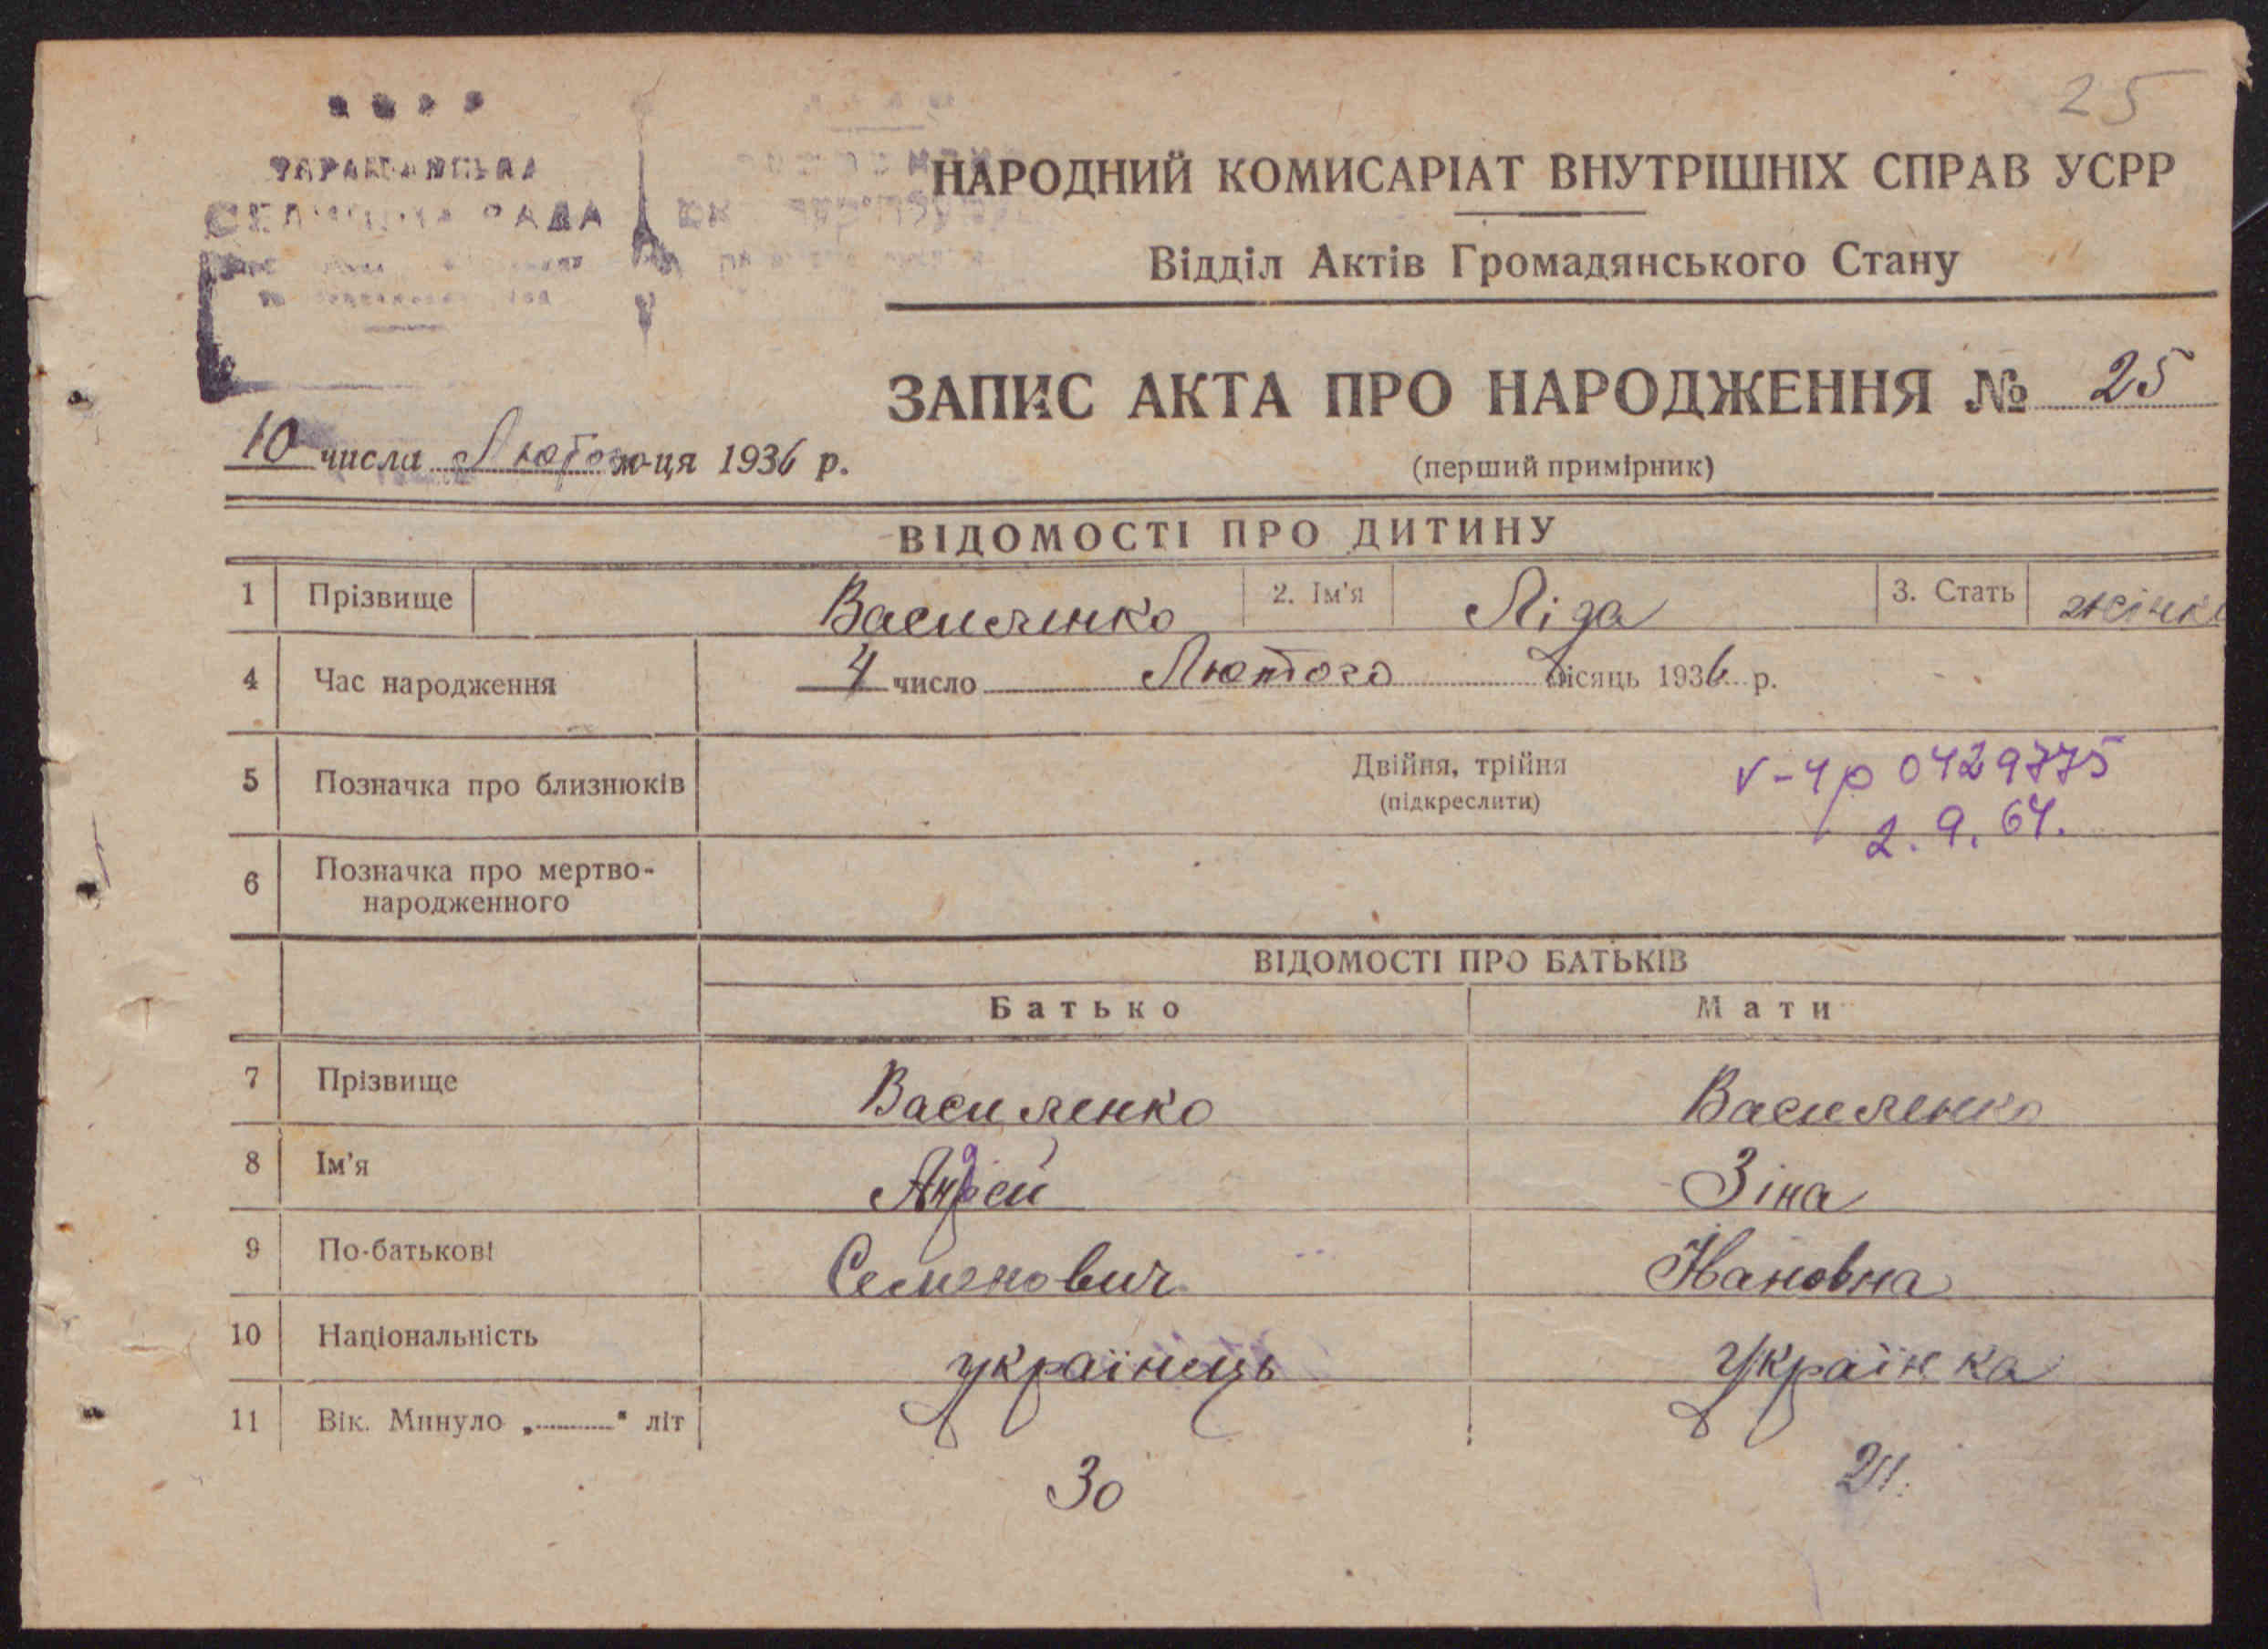 25
РАДА
НАРОДНИЙ КОМИСАРІАТ ВНУТРІШНІХ СПРАВ УСРР
Відділ Актів Громадянського Стану
ЗАПИС АКТА ПРО НАРОДЖЕННЯ № 25
10 числа Лютого м-ця 1936 р.
(перший примірник)
ВІДОМОСТІ ПРО ДИТИНУ
1 Прізвище Василенко 2. Ім'я Ліда 3. Стать жінк
4 Час народження 4 число Лютого місяць 1936 р.
5 Позначка про близнюків Двійня, трійня
(підкреслити)
V-ЧР 0429775
2.9.64.
6 Позначка про мертво-
народженного
ВІДОМОСТІ ПРО БАТЬКІВ
Батько Мати
7 Прізвище Василенко Василенко
8 Ім'я Андрей Зіна
9 По-батькові Семенович Йвановна
10 Національність українець Українка
11 Вік. Минуло „ " літ
30 21.